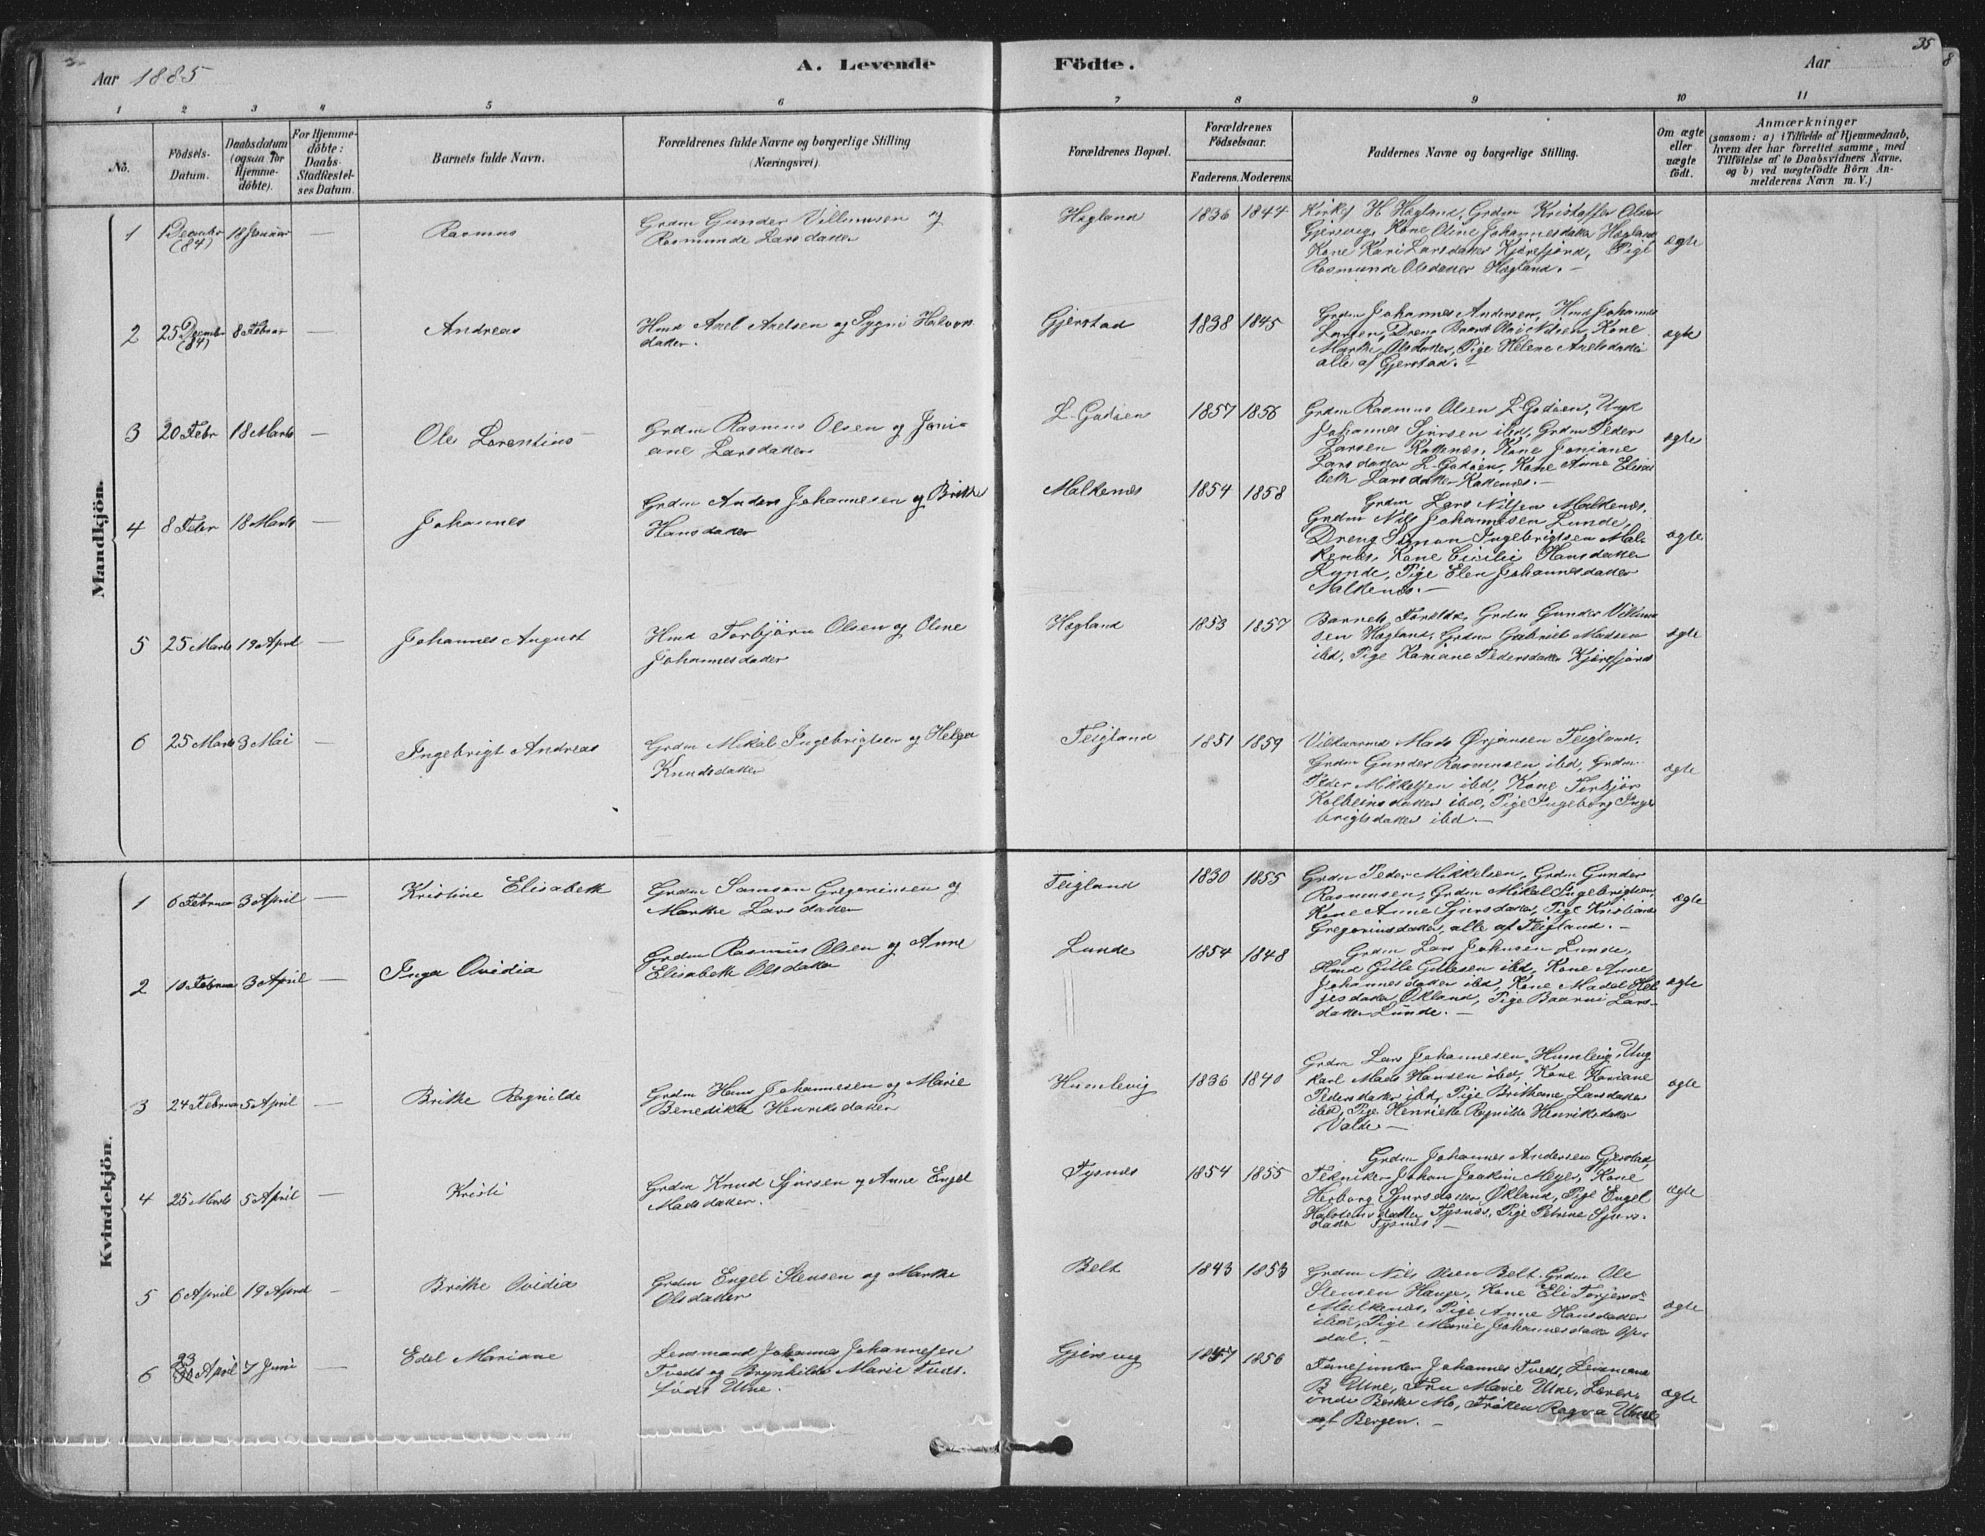 35
8
Aar 1885
A. Levende Födte.
Aar
1 2 3 4 5 6 7 8 9 10 11
No.
Födsels-
Datum.
Daabsdatum
(ogsaa for
Hjemme-
döbte).
For Hjemme-
döbte:
Daabs-
Stadfæstel-
ses Datum.
Barnets fulde Navn.
Forældrenes fulde Navne og borgerlige Stilling
(Næringsvei).
Forældrenes Bopæl.
Forældrenes
Födselsaar.
Faderens. Moderens.
Faddernes Navne og borgerlige Stilling.
Om ægte
eller
uægte
födt.
Anmærkninger
(saasom: a) i Tilfælde af Hjemmedaab,
hvem der har forrettet samme, med
Tilföielse af to Daabsvidners Navne,
og b) ved uægtefödte Börn An-
melderens Navn m. V.)
Mandkjön.
1
December
(84)
18 Januar
—
Rasmus
Grdm Gunder Villumsen og
Rasmunde Larsdatter
Hogland
1836 1844
Kirkes H Hogland, Grdm Kristoffer Olsen
Gjersvig, Kone Oline Johannesdatter Hogland
Kone Kari Larsdatter Kjørefjord, Pige
Rasmunde Olsdatter Hogland. —
ægte
2
25 December
(84)
8 Februar
—
Andreas
Hmd Axel Axelsen og Sygni Halvors
datter.
Gjerstad
1838 1845
Grdm Johannes Andersen, Hmd Johannes
Larsen, Dreng Olai Nilsen, Kone
Marthe Olsdatter, Pige Helene Axelsdatter
alle af Gjerstad. —
ægte
3
20 Febr 18 Marts
—
Ole Lorentius
Grdm Rasmus Olsen og Joni-
ane Larsdatter
L-Godøen
1857 1856
Grdm Rasmus Olsen L-Godøen, Ungk
Johannes Sjursen ibd, Grdm Peder
Larsen Kattenæs, Kone Joniane
Larsdatter L-Godøen, Kone Anne Elisa
beth Larsdatter Kattenæs. —
ægte
4
8 Febr 18 Marts
—
Johannes
Grdm Anders Johannesen og Brithe
Hansdatter
Malkenæs
1854 1858
Grdm Lars Nilsen Malkenæs,
Grdm Nils Johannesen Lunde,
Dreng Simon Ingebrigtsen Mal-
kenæs, Kone Cicilie Hansdatter
Lunde, Pige Elen Johannesdatter
Malkenæs. —
ægte
5
25 Marts 19 April
—
Johannes August
Hmd Torbjørn Olsen og Oline
Johannesdatter
Hogland
1853 1857
Barnets Foreldre, Grdm Gunder Villum
sen Hogland, Grdm Gabriel Madsen
ibd, Pige Koniane Pedersdatter Kjørefjord
ægte
6
25 Marts 3 Mai
—
Ingebrigt Andreas
Grdm Mikal Ingebrigtsen og Helga
Knudsdatter
Teigland
1851 1859
Mads Ørjansen Teigland,
Grdm Gunder Rasmussen ibd, Grdm
Peder Mikkelsen ibd, Kone Torbjør
Kolbeinsdatter ibd, Pige Ingeborg Inge
brigtsdatter ibd. —
ægte
Kvindekjön.
1
6 Februar 3 April
—
Kristine Elisabeth
Grdm Samson Gregoriusen og
Marthe Larsdatter
Teigland
1830 1855
Grdm Peder Mikkelsen, Grdm Gunder
Rasmusen, Grdm Mikal Ingebrigtsen,
Kone Anne Sjursdatter, Pige Kristiane
Gregoriusdatter, alle af Teigland. —
ægte
2
10 Februar 3 April
—
Inga Ovidia
Grdm Rasmus Olsen og Anne
Elisabeth Olsdatter
Lunde
1854 1848
Grdm Lars Johnsen Lunde,
Hmd Gitle Gitlesen ibd, Kone Anne
Johannesdatter ibd, Kone Madel Hel
jesdatter Økland, Pige Baarni Lars-
datter Lunde. —
ægte
3
24 Februar 5 April
—
Brithe Ragnilde
Grdm Hans Johannesen og Marie
Benedikte Henriksdatter
Humlevig
1836 1840
Grdm Lars Johannesen Humlevig, Ung
karl Mads Hansen ibd, Kone Koniane
Pedersdatter ibd, Pige Brithane Larsdatter
ibd, Pige Henriette Ragnilde Henriksdatter
Valde —
ægte
4
25 Marts 5 April
—
Kristi
Grdm Knud Sjursen og Anne Engel
Madsdatter.
Tysnæs
1854 1855
Grdm Johannes Andersen Gjerstad,
Tekniker Johan Joakim Meyer, Kone
Herborg Sjursdatter Økland, Pige Engel
datter Tysnæs, Pige Petrine Sjurs-
datter Tysnæs. —
ægte
5
6 April 19 April
—
Brithe Ovidia
Grdm Engel Stensen og Marthe
Olsdatter
Belt
1843 1853
Grdm Nils Olsen Belt, Grdm Ole
Stensen Hauge, Kone Eli Torjersd
Malkenæs, Pige Anne Hansdatter
ibd, Pige Marie Johannesdatter
dal. —
ægte
6
23
April 7 Juni
—
Edel Mariane
Lensmand Johannes Johannesen
Tvedt og Brynhilde Marie Tvedt
født Utne.
Gjersvig
1857 1856
Johannes Tvedt, Lensmand
B Utne, Fru Marie Utne, Lærer-
inde Berthe Mo, Frøken Ragna Utne
af Bergen. —
ægte